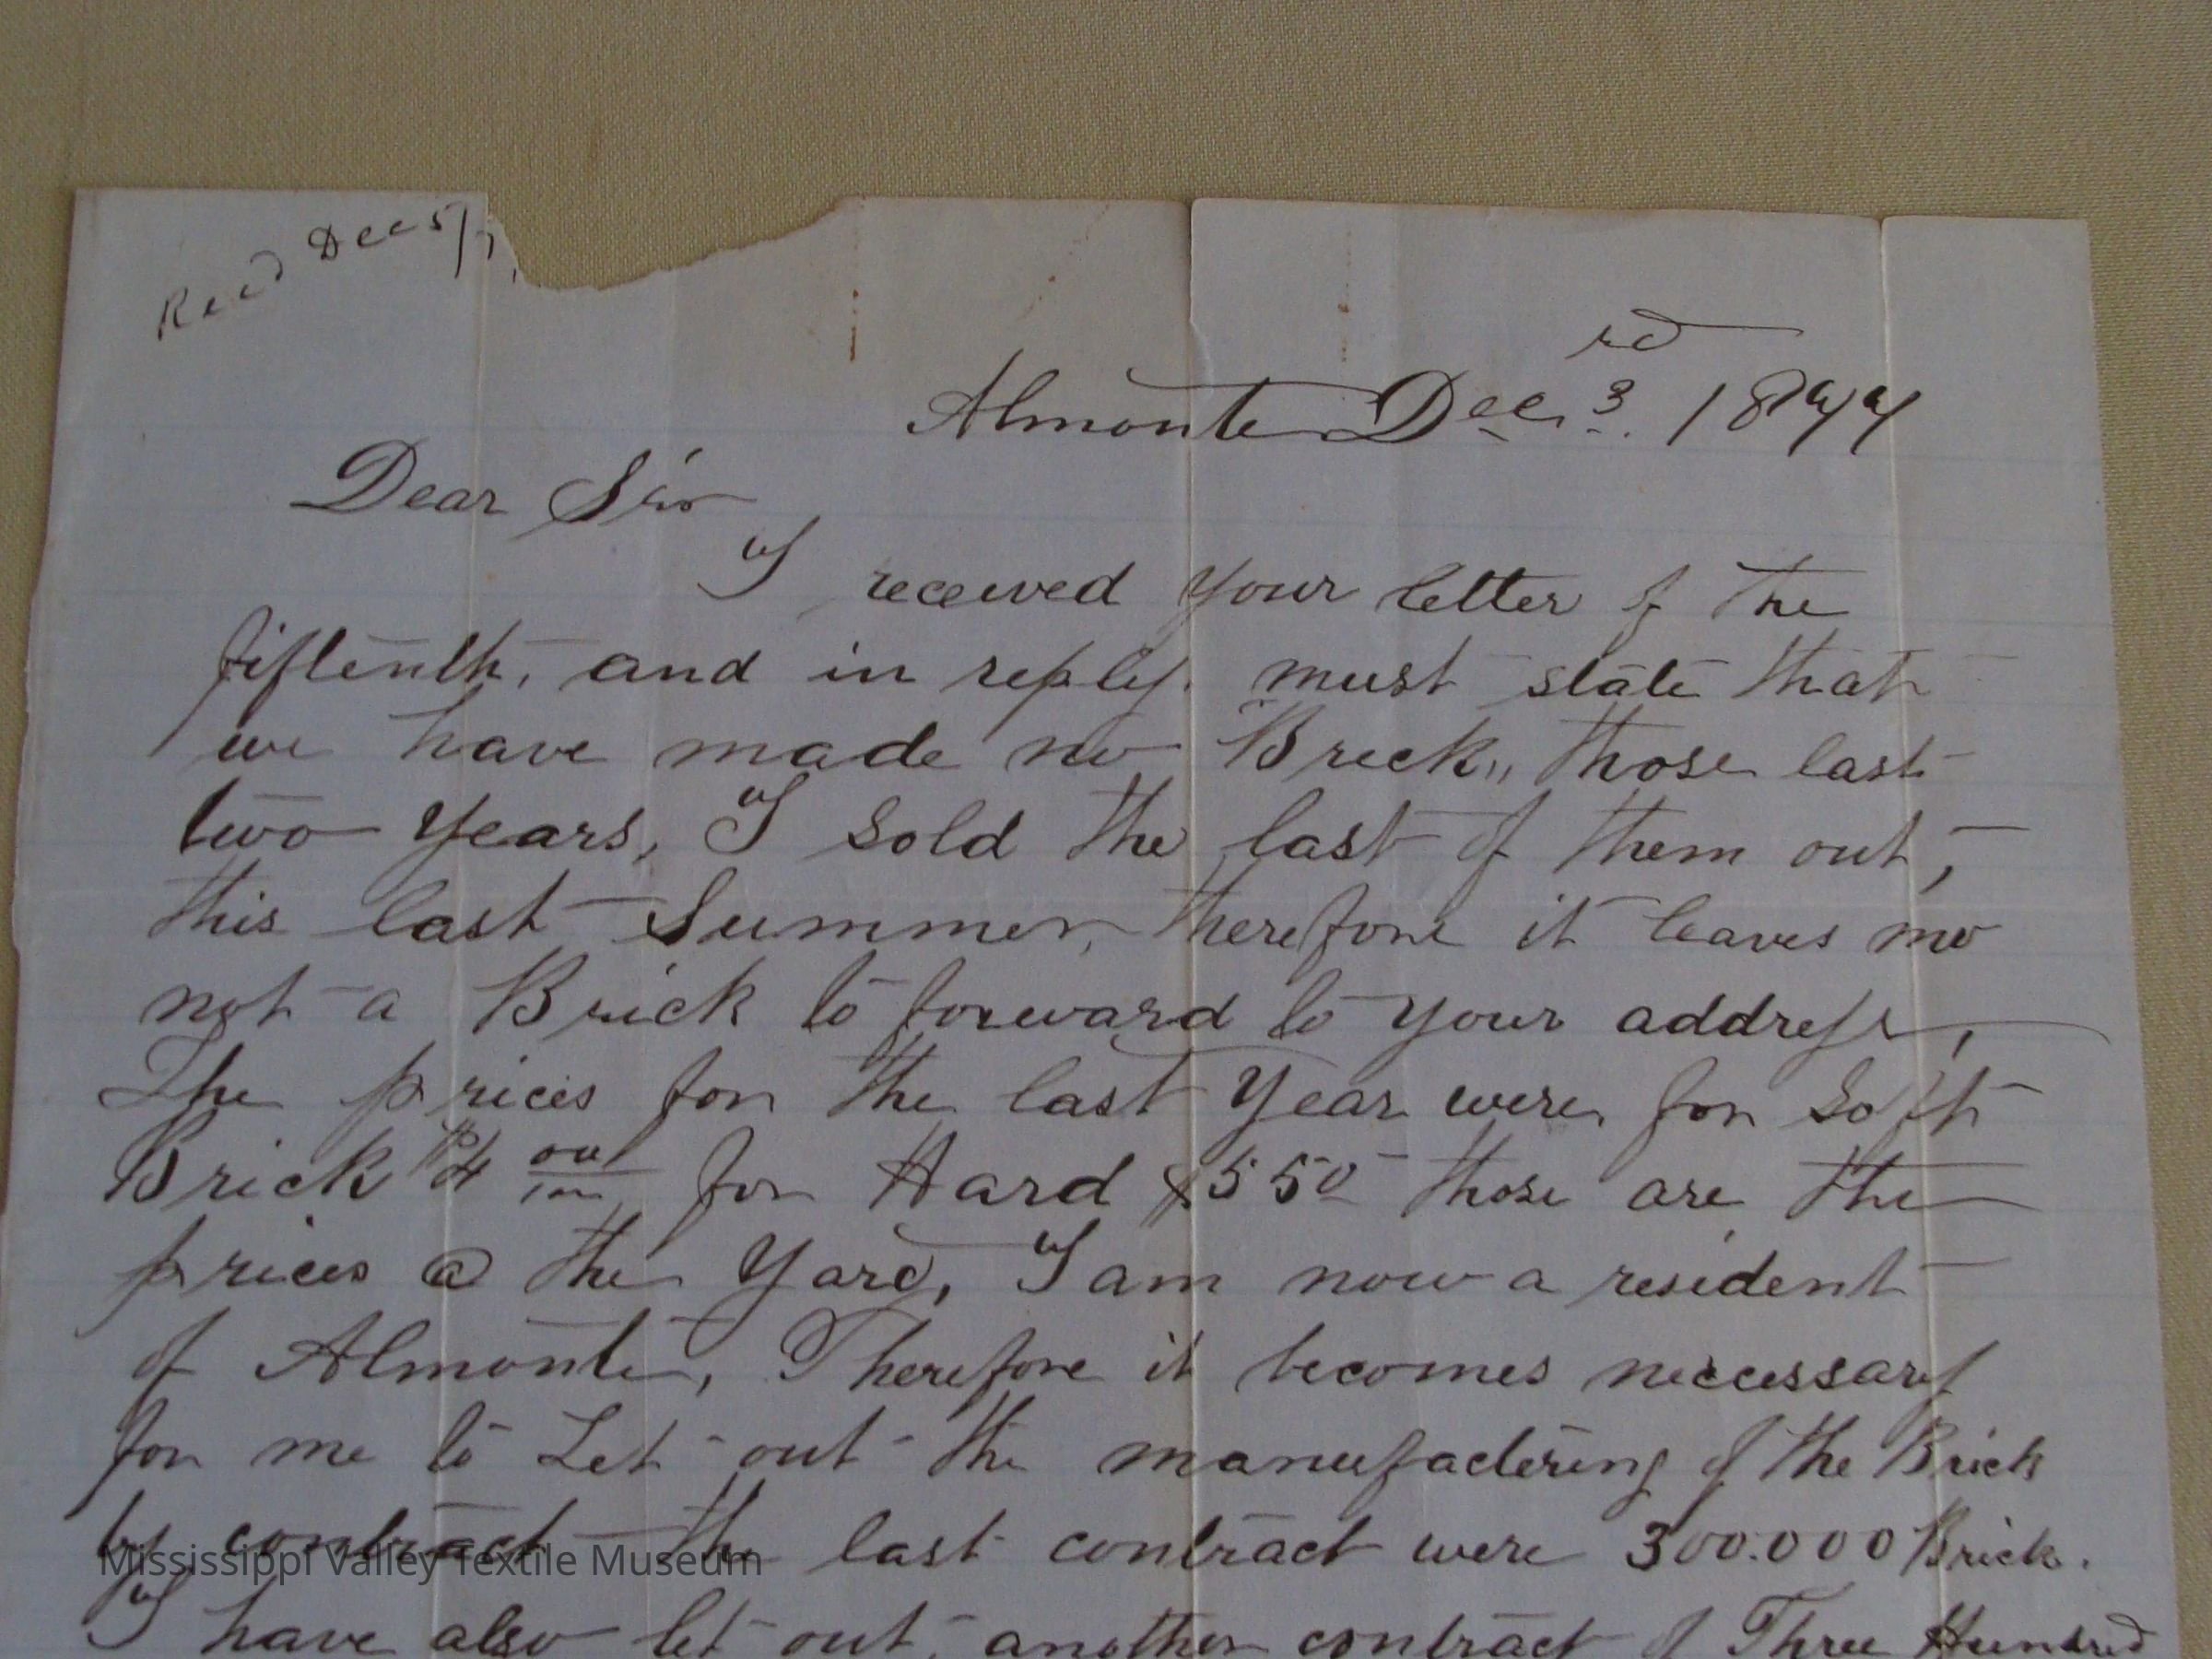 Recd Dec 5/7
Almonte Dec 3rd. 1877
Dear Sir
I received your letter of the
fiftenth, and in reply. must state that
we have made no Brick,, those last
two years, I sold the last of them out,
this last Summer, therefore it leaves me
not a Brick to forward to your address,
The prices for the last Year were for Soft
Brick $4 00/100 for Hard $5 50 those are the
prices @ the Yard, I am now a resident
of Almonte, Therefore it becomes neccessary
for me to Let out the manufactering of the Brick
by contract the last contract were 300.000 Brick.
Mississippi Valley Textile Museum
I have also let out, another contract of Three Hundred